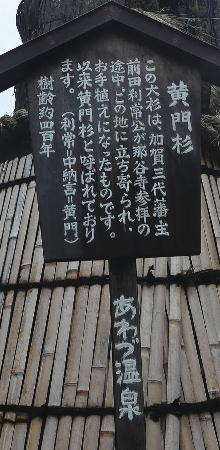 黄門杉
この大杉は、加賀三代藩主
前田利常公が那谷寺参拝の
途中、この地に立ち寄られ、
お手植えになったものです。
以来黄門杉と呼ばれており
ます。(利常=中納言=黄門)
樹齢約四百年
あわづ温泉